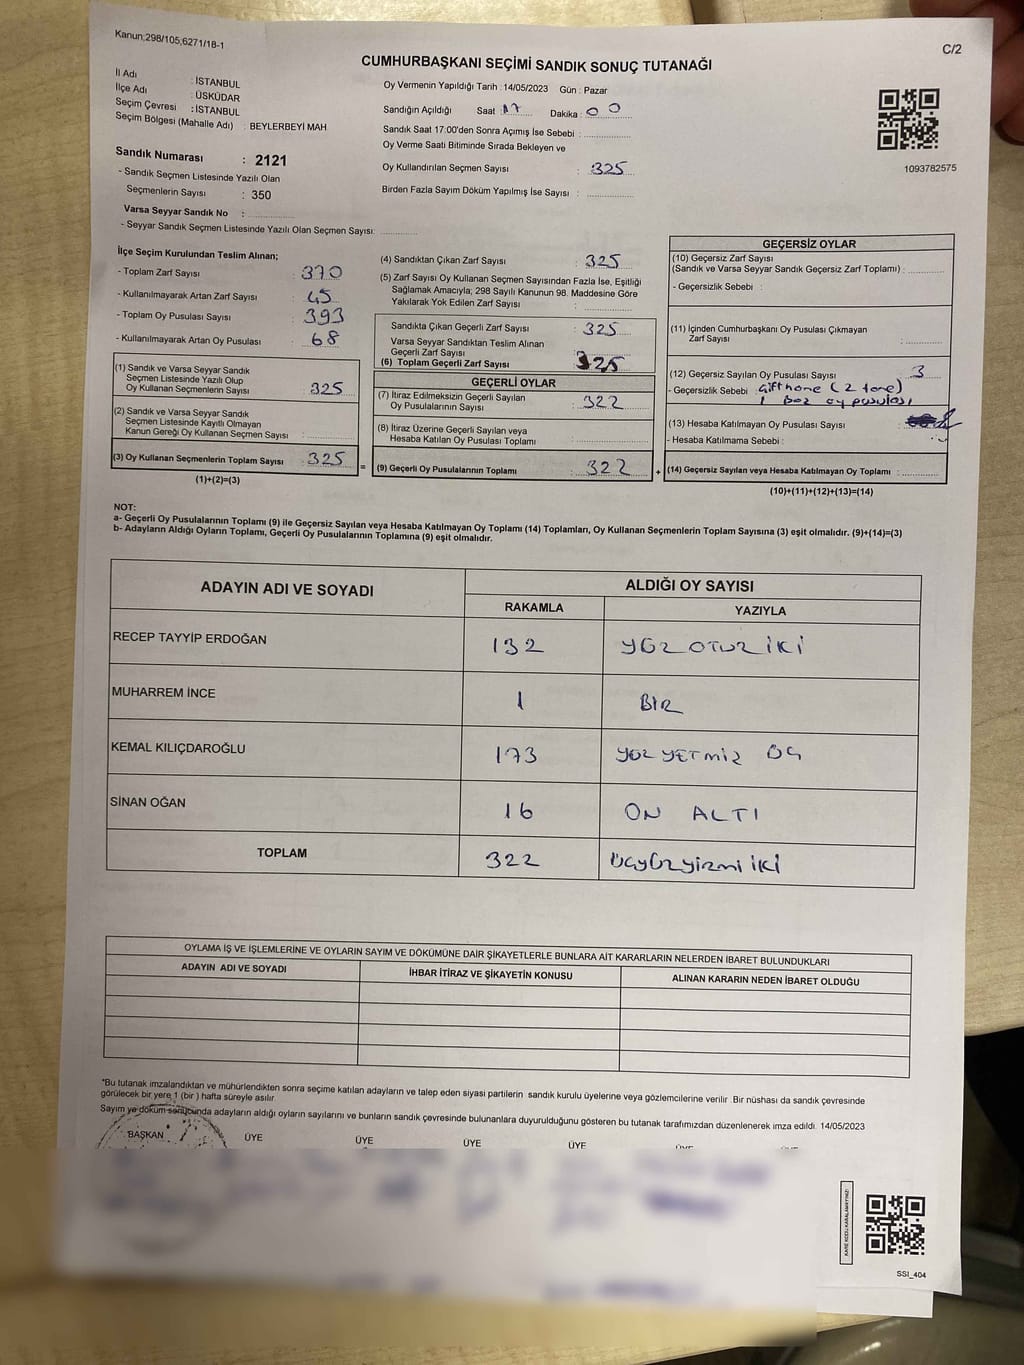 Kanun;298/105,6271/18-1
C/2
CUMHURBAŞKANI SEÇİMİ SANDIK SONUÇ TUTANAĞI
İl Adı : İSTANBUL
İlçe Adı : ÜSKÜDAR
Seçim Çevresi : İSTANBUL
Seçim Bölgesi (Mahalle Adı) : BEYLERBEYİ MAH
Sandık Numarası : 2121
- Sandık Seçmen Listesinde Yazılı Olan
Seçmenlerin Sayısı : 350
Varsa Seyyar Sandık No :
- Seyyar Sandık Seçmen Listesinde Yazılı Olan Seçmen Sayısı:
Oy Vermenin Yapıldığı Tarih : 14/05/2023 Gün : Pazar
Sandığın Açıldığı Saat : 17 Dakika : 00
Sandık Saat 17:00'den Sonra Açımış İse Sebebi :
Oy Verme Saati Bitiminde Sırada Bekleyen ve
Oy Kullandırılan Seçmen Sayısı : 325
Birden Fazla Sayım Döküm Yapılmış İse Sayısı :
1093782575
İlçe Seçim Kurulundan Teslim Alınan;
- Toplam Zarf Sayısı : 370
- Kullanılmayarak Artan Zarf Sayısı : 45
- Toplam Oy Pusulası Sayısı : 393
- Kullanılmayarak Artan Oy Pusulası : 68
(1) Sandık ve Varsa Seyyar Sandık
Seçmen Listesinde Yazılı Olup
Oy Kullanan Seçmenlerin Sayısı : 325
(2) Sandık ve Varsa Seyyar Sandık
Seçmen Listesinde Kayıtlı Olmayan
Kanun Gereği Oy Kullanan Seçmen Sayısı :
(3) Oy Kullanan Seçmenlerin Toplam Sayısı : 325
(1)+(2)=(3)
(4) Sandıktan Çıkan Zarf Sayısı : 325
(5) Zarf Sayısı Oy Kullanan Seçmen Sayısından Fazla İse, Eşitliği
Sağlamak Amacıyla; 298 Sayılı Kanunun 98. Maddesine Göre
Yakılarak Yok Edilen Zarf Sayısı :
Sandıkta Çıkan Geçerli Zarf Sayısı : 325
Varsa Seyyar Sandıktan Teslim Alınan
Geçerli Zarf Sayısı :
(6) Toplam Geçerli Zarf Sayısı : 325
GEÇERLİ OYLAR
(7) İtiraz Edilmeksizin Geçerli Sayılan
Oy Pusulalarının Sayısı : 322
(8) İtiraz Üzerine Geçerli Sayılan veya
Hesaba Katılan Oy Pusulası Toplamı :
= (9) Geçerli Oy Pusulalarının Toplamı : 322 +
GEÇERSİZ OYLAR
(10) Geçersiz Zarf Sayısı
(Sandık ve Varsa Seyyar Sandık Geçersiz Zarf Toplamı) :
- Geçersizlik Sebebi :
(11) İçinden Cumhurbaşkanı Oy Pusulası Çıkmayan
Zarf Sayısı :
(12) Geçersiz Sayılan Oy Pusulası Sayısı : 3
- Geçersizlik Sebebi : Gifthane (2 tane)
1 Boz oy pusulası
(13) Hesaba Katılmayan Oy Pusulası Sayısı :
- Hesaba Katılmama Sebebi :
(14) Geçersiz Sayılan veya Hesaba Katılmayan Oy Toplamı :
(10)+(11)+(12)+(13)=(14)
NOT:
a- Geçerli Oy Pusulalarının Toplamı (9) ile Geçersiz Sayılan veya Hesaba Katılmayan Oy Toplamı (14) Toplamları, Oy Kullanan Seçmenlerin Toplam Sayısına (3) eşit olmalıdır. (9)+(14)=(3)
b- Adayların Aldığı Oyların Toplamı, Geçerli Oy Pusulalarının Toplamına (9) eşit olmalıdır.
ADAYIN ADI VE SOYADI ALDIĞI OY SAYISI
RAKAMLA YAZIYLA
RECEP TAYYİP ERDOĞAN 132 YÜZ OTUZ İKİ
MUHARREM İNCE 1 BİR
KEMAL KILIÇDAROĞLU 173 YÜZ YETMİŞ ÜÇ
SİNAN OĞAN 16 ON ALTI
TOPLAM 322 Üçyüzyirmi iki
OYLAMA İŞ VE İŞLEMLERİNE VE OYLARIN SAYIM VE DÖKÜMÜNE DAİR ŞİKAYETLERLE BUNLARA AİT KARARLARIN NELERDEN İBARET BULUNDUKLARI
ADAYIN ADI VE SOYADI İHBAR İTİRAZ VE ŞİKAYETİN KONUSU ALINAN KARARIN NEDEN İBARET OLDUĞU
*Bu tutanak imzalandıktan ve mühürlendikten sonra seçime katılan adayların ve talep eden siyasi partilerin sandık kurulu üyelerine veya gözlemcilerine verilir. Bir nüshası da sandık çevresinde
görülecek bir yere 1 (bir ) hafta süreyle asılır.
Sayım ve döküm sonucunda adayların aldığı oyların sayılarını ve bunların sandık çevresinde bulunanlara duyurulduğunu gösteren bu tutanak tarafımızdan düzenlenerek imza edildi. 14/05/2023
BAŞKAN ÜYE ÜYE ÜYE ÜYE
KARE KODU KARALAMAYINIZ!
SSI_404